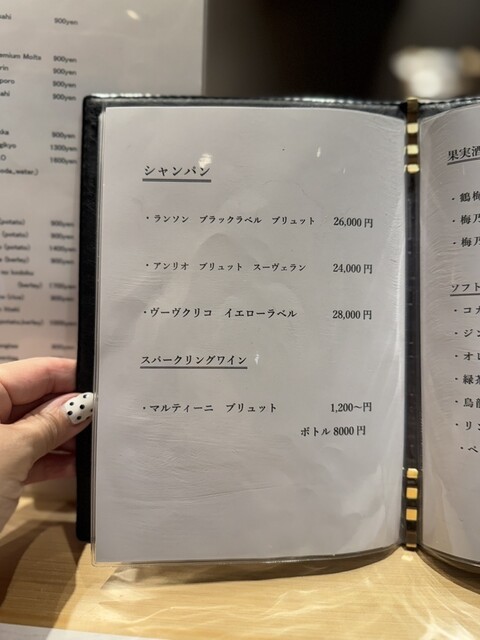 900yen
900yen
900yen
900yen
900yen
900yen
1300yen
1600yen
(potato)
900yen
900yen
(potato)
1400yen
(barley)
900yen
(barley)
1700yen
(rice)
900yen
900yen
シャンパン
・ランソン ブラックラベル ブリュット 26,000円
・アンリオ ブリュット スーヴェラン 24,000円
・ヴーヴクリコ イエローラベル 28,000円
スパークリングワイン
・マルティーニ ブリュット 1,200〜円
ボトル 8000円
果実酒
・鶴梅
・梅乃
・梅乃
ソフト
・コカ
・ジン
・オレ
・緑茶
・烏龍
・リン
・ペ